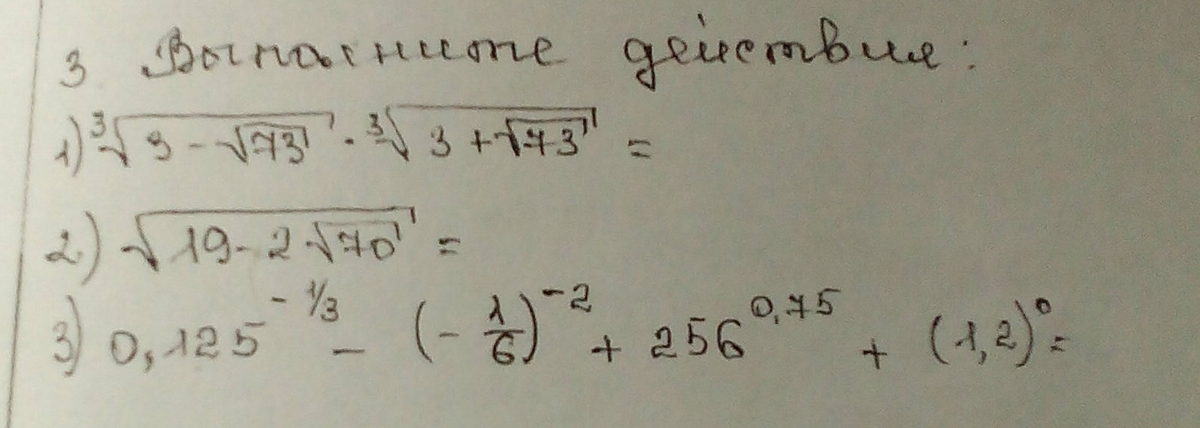 3. Выполните действия:
1) ∛(3 - √73) · ∛(3 + √73) =
2) √(19 - 2√70) =
3) 0,125^(-1/3) - (-1/6)^(-2) + 256^(0,75) + (1,2)^0 =